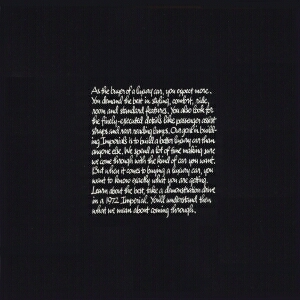 As the buyer of a luxury car, you expect more.
You demand the best in styling, comfort, ride,
room and standard features. You also look for
the finely-executed details like passenger assist
straps and rear reading lamps. Our goal in build-
ing Imperials is to build a better luxury car than
anyone else. We spend a lot of time making sure
we come through with the kind of car you want.
But when it comes to buying a luxury car, you
want to know exactly what you are getting.
Learn about the best, take a demonstration drive
in a 1972 Imperial. You'll understand then
what we mean about coming through.